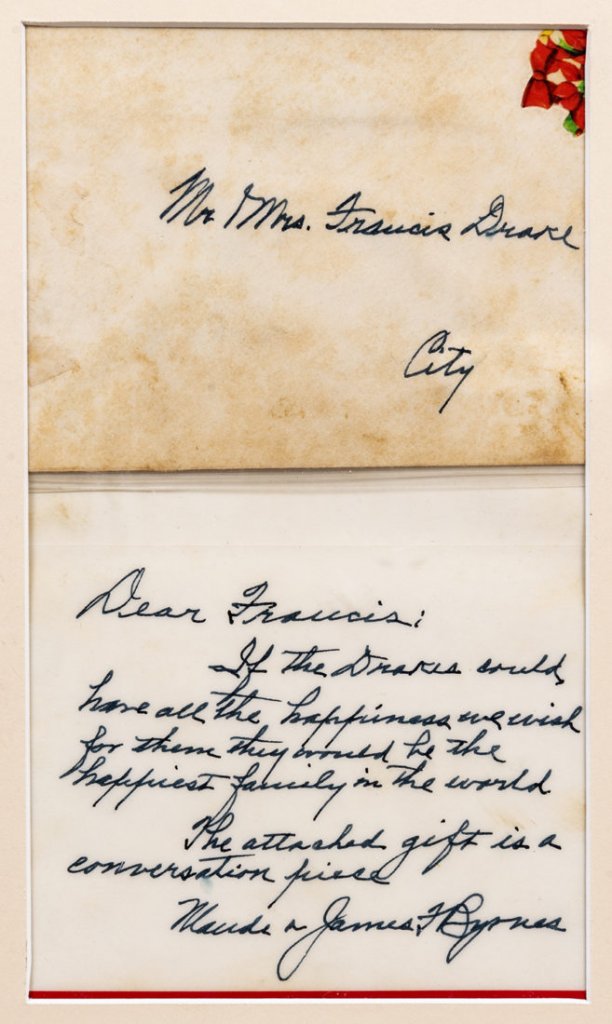 Mr & Mrs. Francis Drake
City
Dear Francis:
If the Drakes could
have all the happiness we wish
for them they would be the
happiest family in the world
The attached gift is a
conversation piece
Maude & James F Byrnes